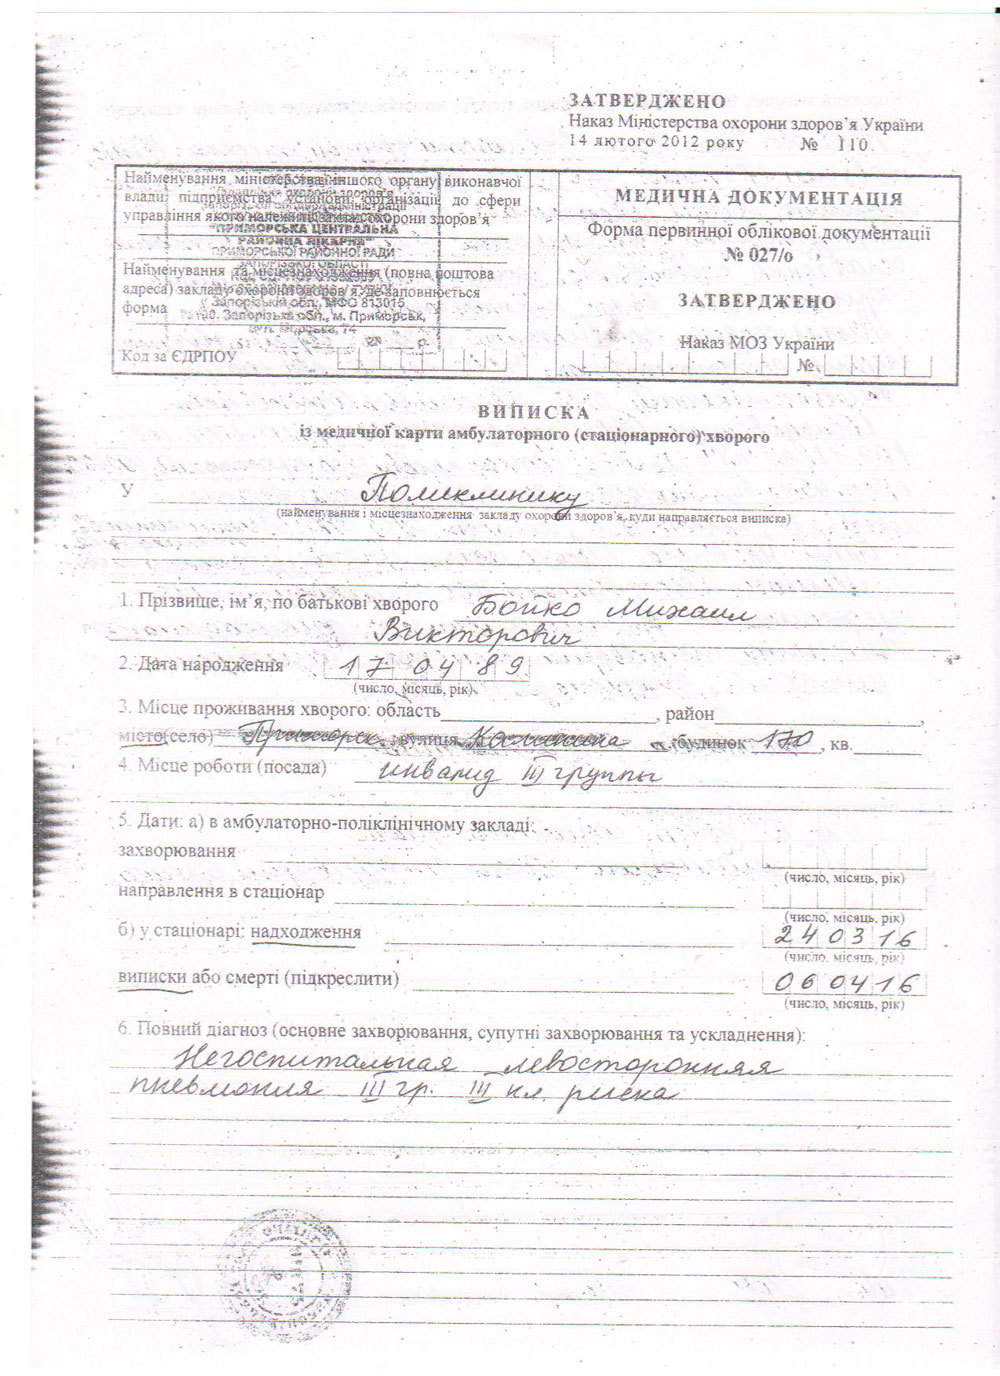 ЗАТВЕРДЖЕНО
Наказ Міністерства охорони здоров’я України
14 лютого 2012 року № 110
Найменування міністерства, іншого органу виконавчої
влади, підприємства, установи, організації, до сфери
управління якого належить заклад охорони здоров’я
"ПРИМОРСЬКА ЦЕНТРАЛЬНА
РАЙОННА ЛІКАРНЯ"
ПРИМОРСЬКОЇ РАЙОННОЇ РАДИ
ЗАПОРІЗЬКОЇ ОБЛАСТІ
Найменування та місцезнаходження (повна поштова
адреса) закладу охорони здоров’я, де заповнюється
форма
Запорізькій обл., МФО 813015
Запорізька обл., м. Приморськ,
Код за ЄДРПОУ
МЕДИЧНА ДОКУМЕНТАЦІЯ
Форма первинної облікової документації
№ 027/о
ЗАТВЕРДЖЕНО
Наказ МОЗ України
№
ВИПИСКА
із медичної карти амбулаторного (стаціонарного) хворого
У Поликлинику
(найменування і місцезнаходження закладу охорони здоров’я, куди направляється виписка)
1. Прізвище, ім’я, по батькові хворого Бойко Михаил
Викторович
2. Дата народження 17 04 89
(число, місяць, рік)
3. Місце проживання хворого: область , район ,
місто(село) Приморск вулиця будинок 170 , кв.
4. Місце роботи (посада) инвалид III группы
5. Дати: а) в амбулаторно-поліклінічному закладі:
захворювання
(число, місяць, рік)
направлення в стаціонар
(число, місяць, рік)
б) у стаціонарі: надходження 24 03 16
(число, місяць, рік)
виписки або смерті (підкреслити) 06 04 16
(число, місяць, рік)
6. Повний діагноз (основне захворювання, супутні захворювання та ускладнення):
Негоспитальная левосторонняя
пневмония III гр. III кл. риска